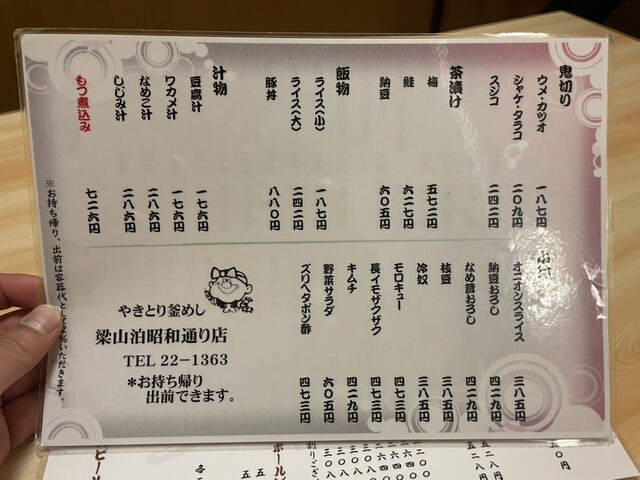 鬼切り
ウメ・カツオ 一八七円
シャケ・タラコ 二〇九円
スジコ 二四二円
茶漬け
梅 五七二円
鮭 六二七円
納豆 六〇五円
飯物
ライス(小) 一八七円
ライス(大) 二四二円
豚丼 八八〇円
汁物
豆腐汁 一七六円
ワカメ汁 一七六円
なめこ汁 二八六円
しじみ汁 二八六円
もつ煮込み 七二六円
オニオンスライス 三八五円
納豆おろし 四二九円
なめ茸おろし 四二九円
枝豆 三八五円
冷奴 三八五円
モロキュー 四七三円
長イモザクザク 四七三円
キムチ 四二九円
野菜サラダ 六〇五円
ズリヘタポン酢 四七三円
やきとり釜めし
梁山泊昭和通り店
TEL 22-1363
*お持ち帰り
出前できます。
※お持ち帰り、出前は容器代として2%いただきます。